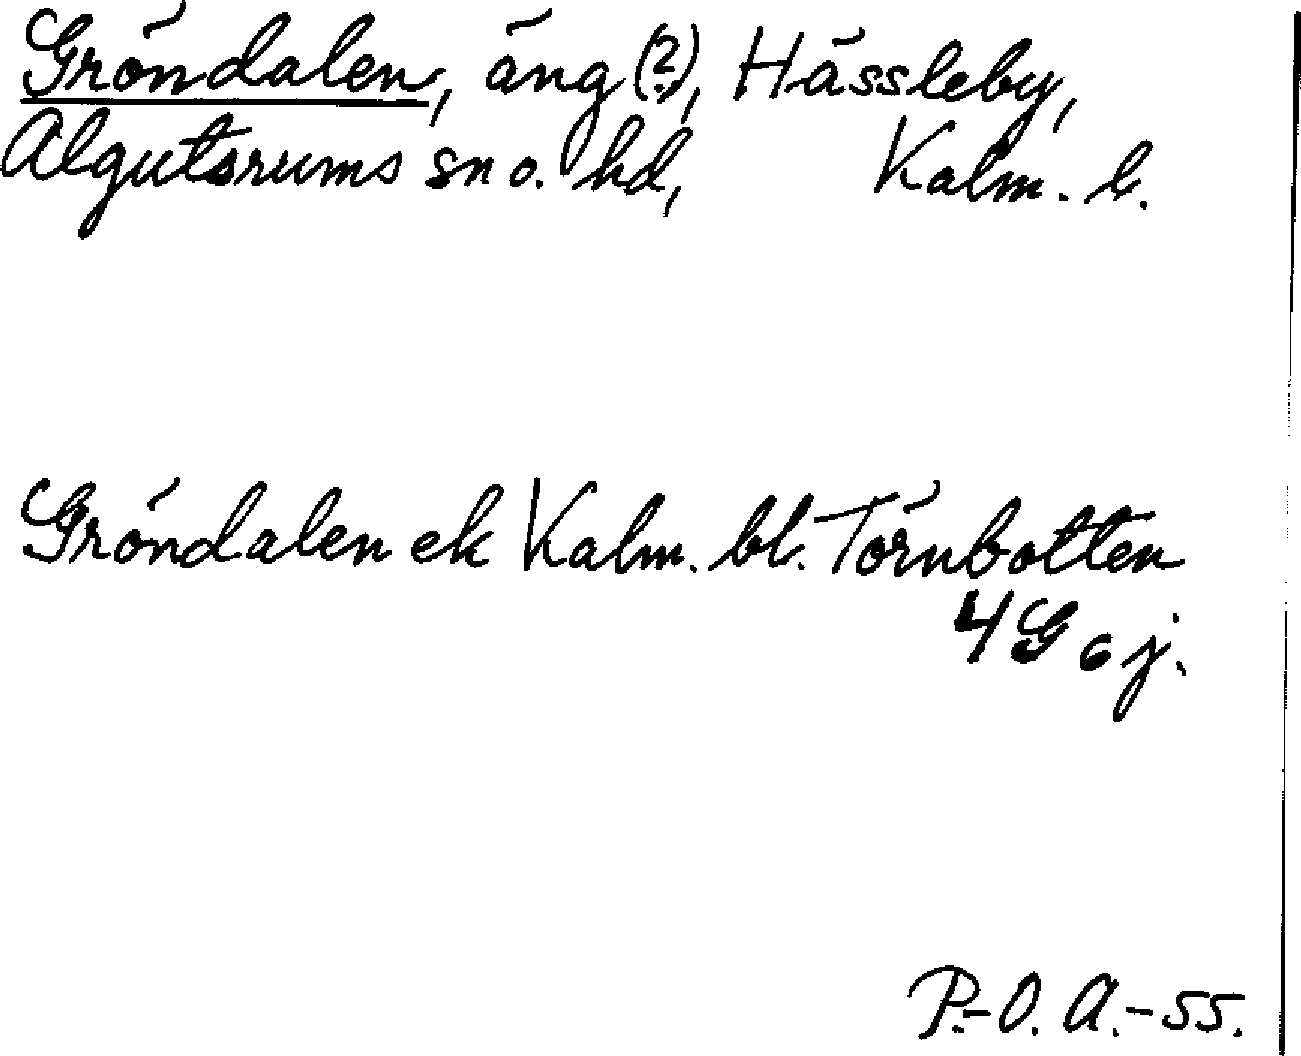 Gröndalen, äng (?), Hässleby,
Algutsrums sn o. hd, Kalm. l.
Gröndalen ek Kalm. bl. Törnbotten
4 G 6 j.
P.-O. A.-55.